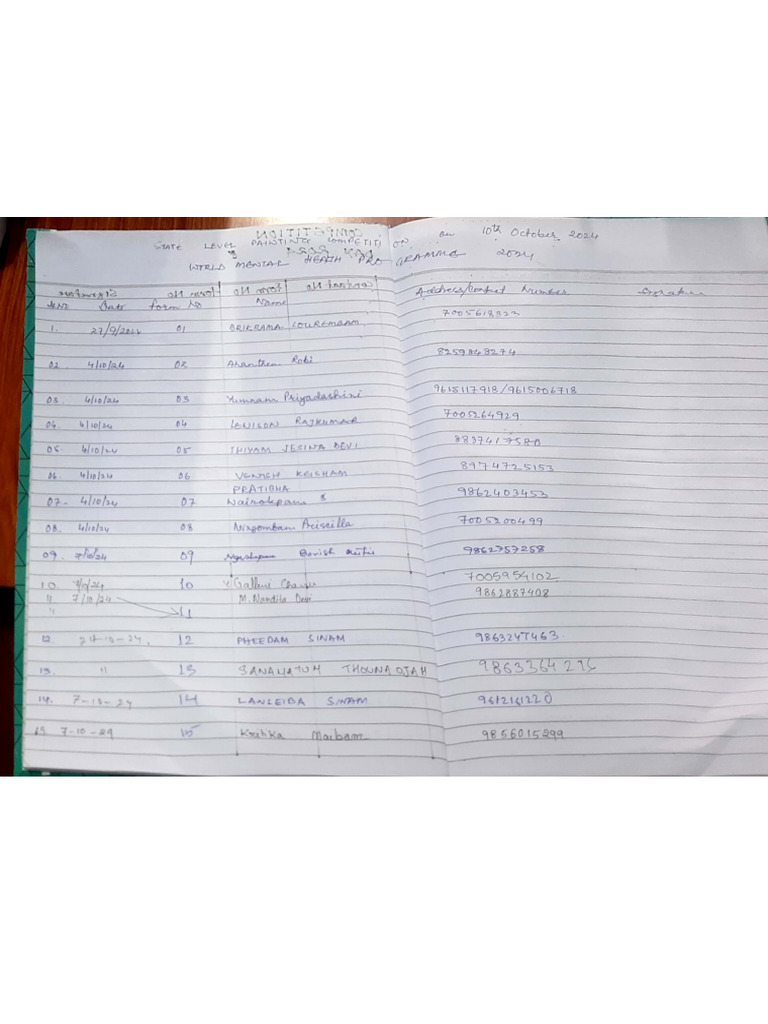 STATE LEVEL PAINTING COMPETITION on 10th October 2024
WORLD MENTAL HEALTH PROGRAMME 2024
Sl.No Date Form No Name Address/Contact Number
1. 01 SRIKRAMA LOUREMBAM 7005618323
02. 4/10/24 02 Ahanthem Robi 8259048274
03. 4/10/24 03 Yumnam Priyadashini 9615117918/9615006718
04. 4/10/24 04 LENISON RAJKUMAR 7005264929
05. 4/10/24 05 THIYAM JESINA DEVI 8837417580
06. 4/10/24 06 VENISH KEISHAM 8974725153
PRATIBHA
07- 4/10/24 07 Nairokpam 9862403453
08. 4/10/24 08 Ningombam Priscilla 7005200499
09. 7/10/24 09 Bovish 9862757258
10. 7/10/24 10 7005954102
11 7/10/24 M. Nandita Devi 9862887408
11
12. 12 PHEEDAM SINAM 9863247463
13. " 13 SANAHATUM THOUNAOJAM
14. 7-10-24 14 LANLEIBA SINAM 9612161220
15 7-10-24 15 Maibam 9856015299